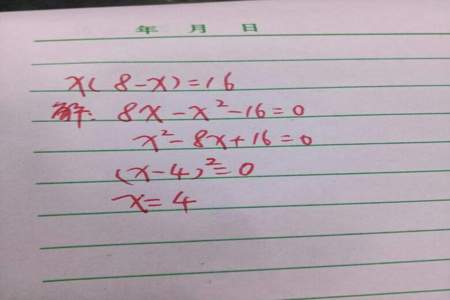 年 月 日
x(8-x)=16
解: 8x-x²-16=0
x²-8x+16=0
(x-4)²=0
x=4